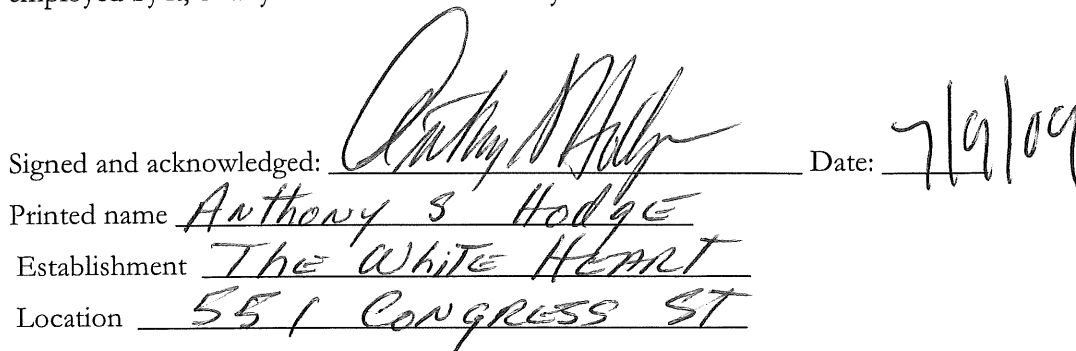 Signed and acknowledged: Anthony S Hodge Date: 7/9/09
Printed name Anthony S Hodge
Establishment The White Heart
Location 551 Congress St